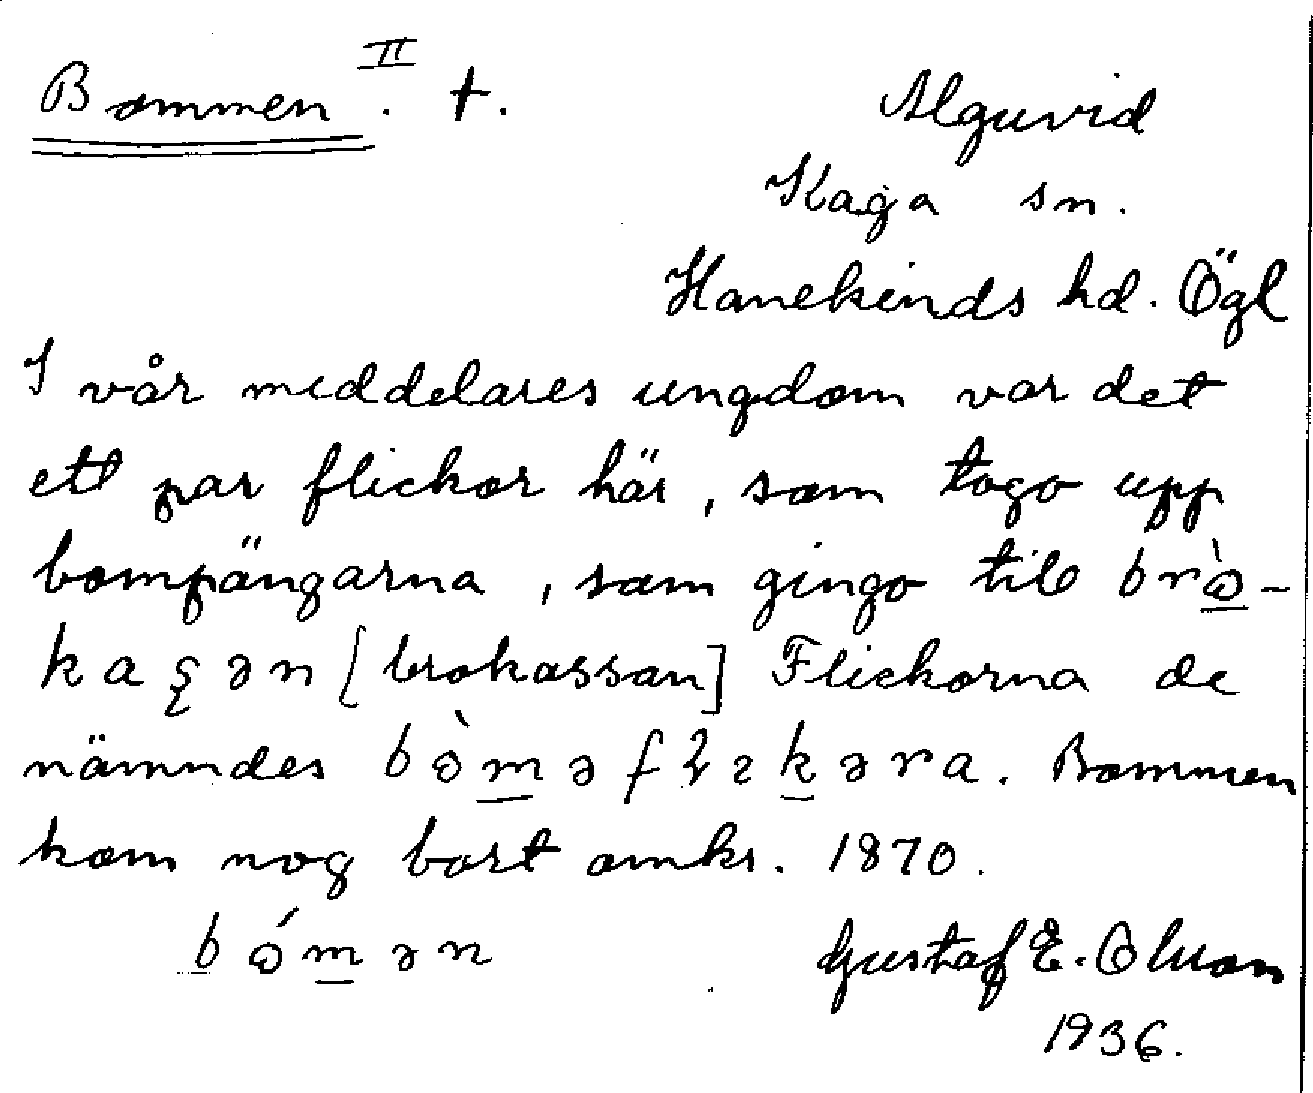 Bommen II. †.
Alguvid
Kaga sn.
Hanekinds hd. Ögl
I vår meddelares ungdom var det
ett par flickor här, som togo upp
bompängarna, som gingo till brò-
kaʂən [brokassan] Flickorna de
nämndes bòməflɪkəra. Bommen
kom nog bort omkr. 1870.
bómən
Gustaf E. Olsson
1936.